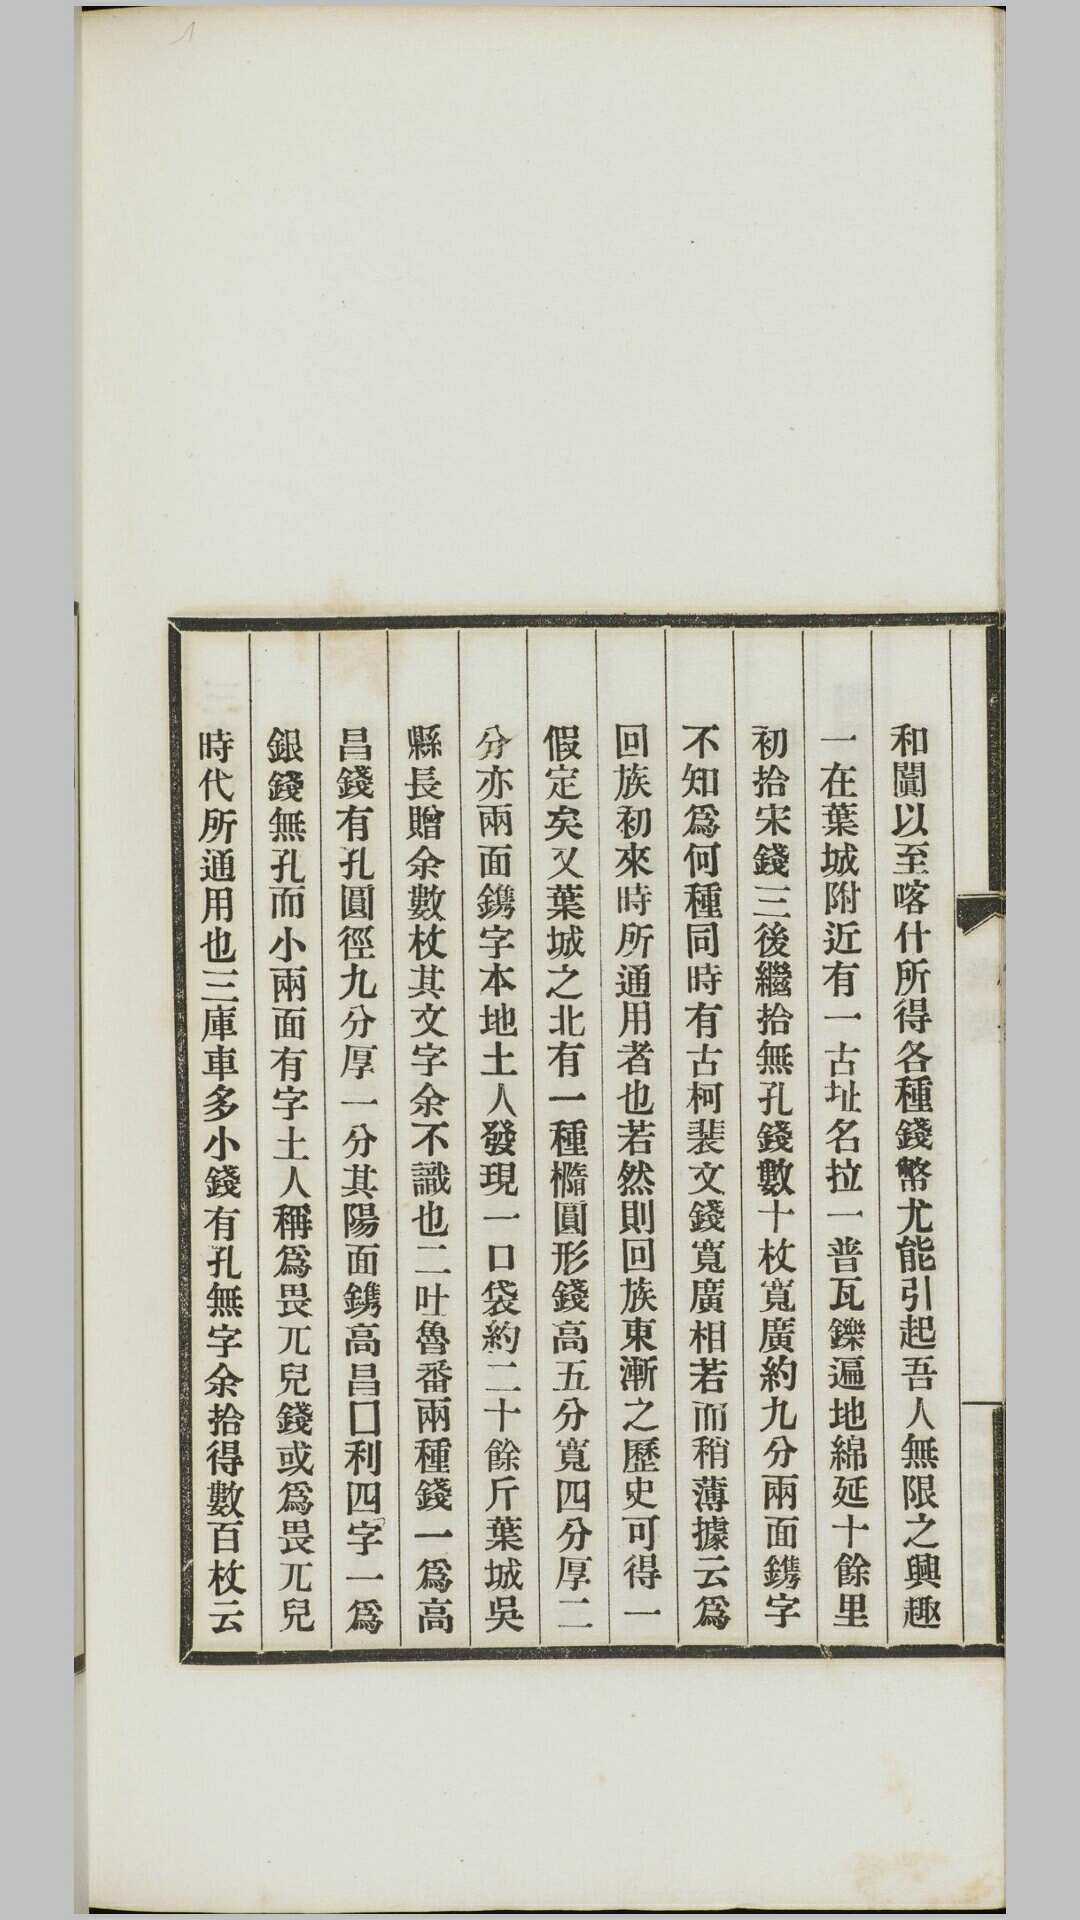 和闐以至喀什所得各種錢幣尤能引起吾人無限之興趣
一在葉城附近有一古址名拉一普瓦鑠遍地綿延十餘里
初拾宋錢三後繼拾無孔錢數十枚寬廣約九分兩面鐫字
不知爲何種同時有古柯裴文錢寬廣相若而稍薄據云爲
回族初來時所通用者也若然則回族東漸之歷史可得一
假定矣又葉城之北有一種橢圓形錢高五分寬四分厚二
分亦兩面鐫字本地土人發現一口袋約二十餘斤葉城吳
縣長贈余數枚其文字余不識也二吐魯番兩種錢一爲高
昌錢有孔圓徑九分厚一分其陽面鐫高昌囗利四字一爲
銀錢無孔而小兩面有字土人稱爲畏兀兒錢或爲畏兀兒
時代所通用也三庫車多小錢有孔無字余拾得數百枚云